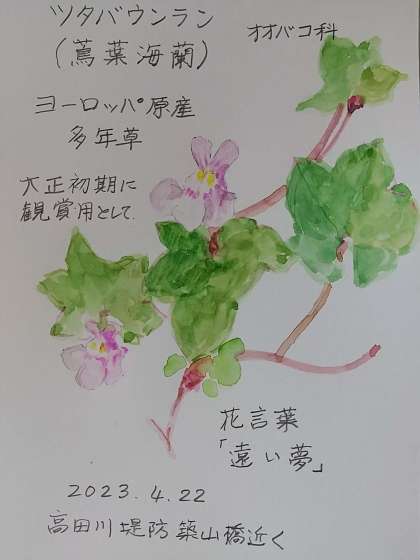 ツタバウンラン
(蔦葉海蘭)
オオバコ科
ヨーロッパ原産
多年草
大正初期に
観賞用として
花言葉
「遠い夢」
2023.4.22
高田川堤防築山橋近く